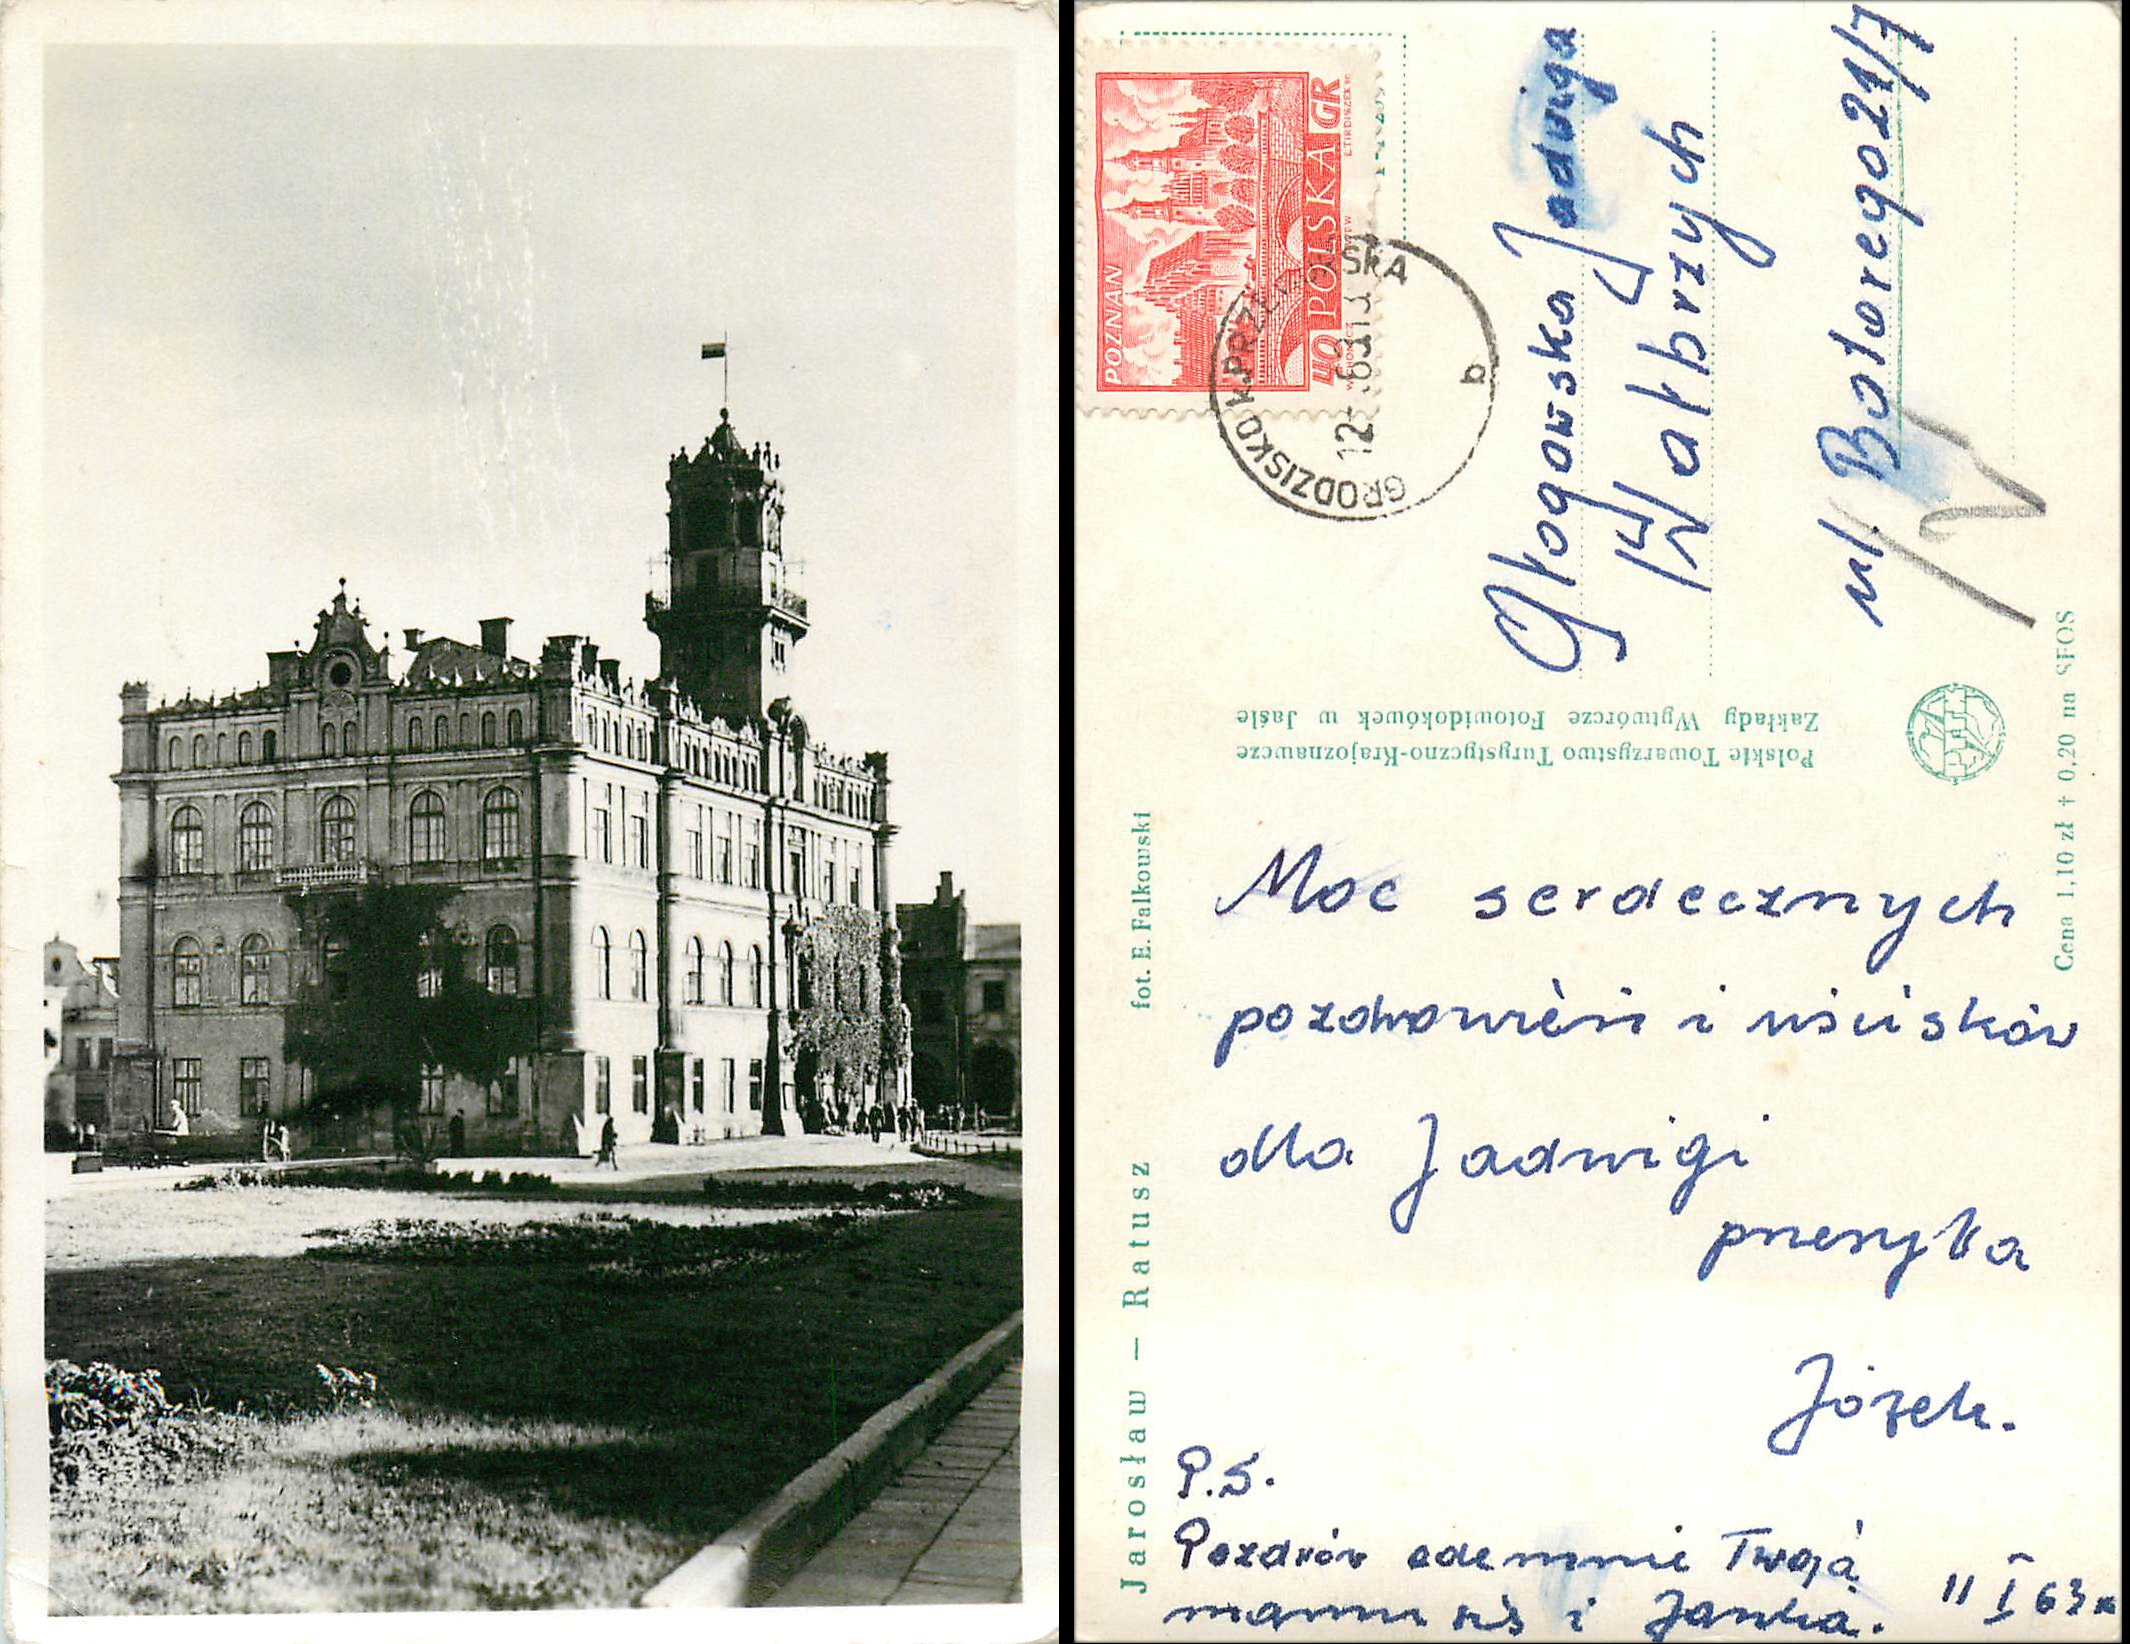 POZNAŃ
40 POLSKA GR
GRODZISKO K.PRZEWORSKA
12.-1.63.13
b
Głogowska Jadwiga
Wałbrzych
ul. Batorego 21/7
Polskie Towarzystwo Turystyczno-Krajoznawcze
Zakłady Wytwórcze Fotowidokówek w Jaśle
PTTK
Cena 1,10 zł + 0,20 na SFOS
fot. E. Falkowski
Jarosław — Ratusz
Moc serdecznych
pozdrowień i uścisków
dla Jadwigi
przesyła
Józek.
P.S.
Pozdrów odemnie Twoją
mamusię i Janka.
11 I 63 r